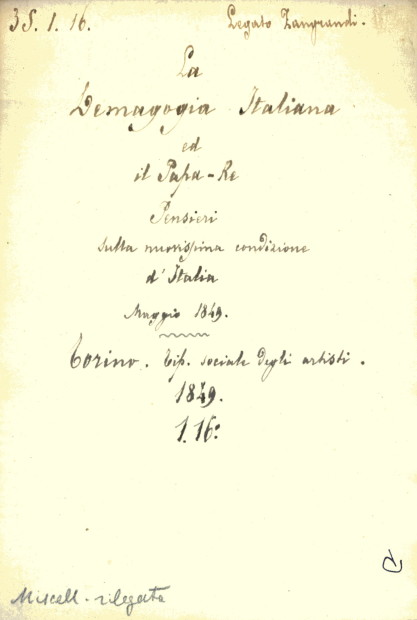 35. 1. 16.
Legato Zangrandi.
La
Demagogia Italiana
ed
il Papa-Re
Pensieri
sulla nuovissima condizione
d'Italia
Maggio 1849.
Torino. Tip. sociale degli artisti.
1849.
1. 16º
Miscell. rilegata